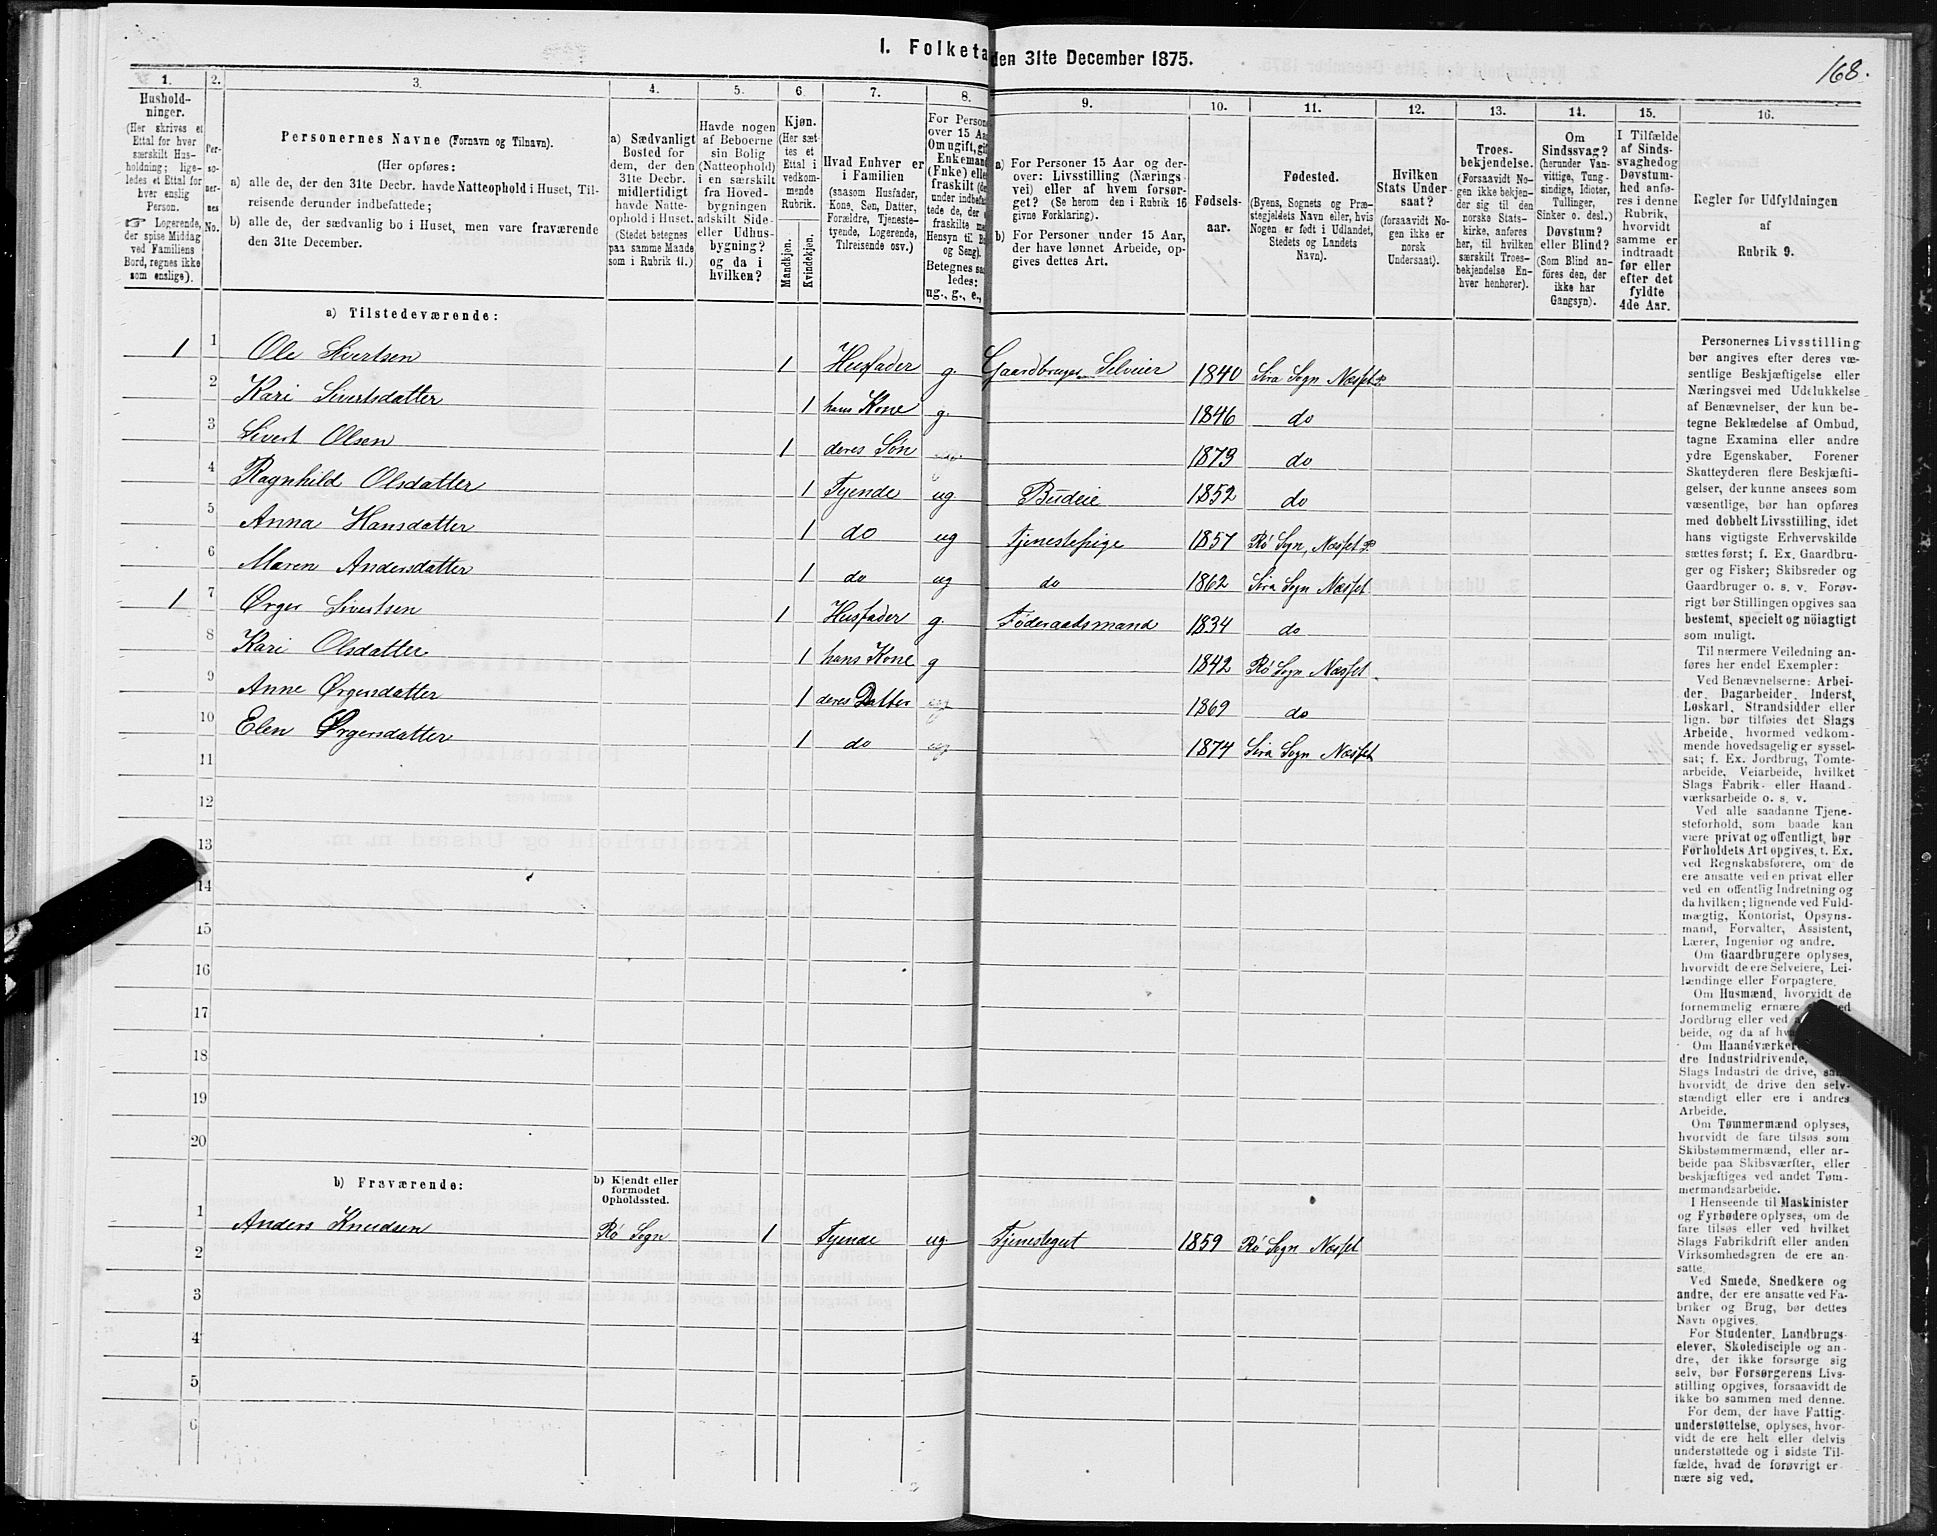 168.
I. Folketa den 31te December 1875.
1. 2. 3. 4. 5. 6. 7. 8. 9. 10. 11. 12. 13. 14. 15. 16.
Hushold-
ninger.
(Her skrives et
Ettal for hver
særskilt Hus-
holdning; lige-
ledes et Ettal for
hver enslig
Person.
☞ Logerende,
der spise Middag
ved Familiens
Bord, regnes ikke
som enslige).
Per-
so-
ner-
nes
No.
Personernes Navne (Fornavn og Tilnavn).
(Her opføres:
a) alle de, der den 31te Decbr. havde Natteophold i Huset, Til-
reisende derunder indbefattede;
b) alle de, der sædvanlig bo i Huset, men vare fraværende
den 31te December.
a) Sædvanligt
Bosted for
dem, der den
31te Decbr.
midlertidigt
havde Natte-
ophold i Huset.
(Stedet betegnes
paa samme Maade
som i Rubrik 11.)
Havde nogen
af Beboerne
sin Bolig
(Natteophold)
i en særskilt
fra Hoved-
bygningen
adskilt Side-
eller Udhus-
bygning?
og da i
hvilken?
Kjøn.
(Her sæt-
tes et
Ettal i
vedkom-
mende
Rubrik.
Mandkjøn.
Kvindekjøn.
Hvad Enhver er
i Familien
(saasom Husfader,
Kone, Søn, Datter,
Forældre, Tjeneste-
tyende, Logerende,
Tilreisende osv.)
For Person
over 15 Aa
Om ugift, gif
Enkemand
(Enke) elle
fraskilt (de
under indbefat
tede de, der e
fraskilte me
Hensyn til B
og Seng).
Betegnes saa
ledes:
ug., g., e.,
a) For Personer 15 Aar og der-
over: Livsstilling (Nærings-
vei) eller af hvem forsør-
get? (Se herom den i Rubrik 16
givne Forklaring).
b) For Personer under 15 Aar,
der have lønnet Arbeide, op-
gives dettes Art.
Fødsels-
aar.
Fødested.
(Byens, Sognets og Præ-
stegjeldets Navn eller, hvis
Nogen er født i Udlandet,
Stedets og Landets
Navn).
Hvilken
Stats Under-
saat?
(forsaavidt No-
gen ikke er
norsk
Undersaat).
Troes-
bekjendelse.
(Forsaavidt No-
gen ikke bekjen-
der sig til den
norske Stats-
kirke, anføres
her, til hvilken
særskilt Troes-
bekjendelse En-
hver henhører).
Om
Sindssvag?
(herunder Van-
vittige, Tung-
sindige, Idioter,
Tullinger,
Sinker o. desl.)
Døvstum?
eller Blind?
(Som Blind an-
føres den, der
ikke har
Gangsyn).
I Tilfælde
af Sinds-
svaghed og
Døvstum-
hed anfø-
res i denne
Rubrik,
hvorvidt
samme er
indtraadt
før eller
efter det
fyldte
4de Aar.
Regler for Udfyldningen
af
Rubrik 9.
a) Tilstedeværende:
1 1 Ole Sivertsen 1 Husfader g. Gaardbruger Selveier 1840 Sira Sogn Næsset P.
2 Kari Sivertsdatter 1 hans Kone g. 1846 do
3 Sivert Olsen 1 deres Søn 1873 do
4 Ragnhild Olsdatter 1 Tyende ug Budeie 1852 do
5 Anna Hansdatter 1 do ug Tjenestepige 1857 Rø Sogn, Næsset P.
6 Maren Andersdatter 1 do ug do 1862 Sira Sogn Næsset
1 7 Ørger Sivertsen 1 Husfader g. Føderaadsmand 1834 do
8 Kari Olsdatter 1 hans Kone g 1842 Rø Sogn Næsset
9 Anne Ørgersdatter 1 deres Datter ug 1869 do
10 Elen Ørgersdatter 1 do ug 1874 Sira Sogn Næsset
11
12
13
14
15
16
17
18
19
20
b) Fraværende:
b) Kjendt eller
formodet
Opholdssted.
1 Anders Knudsen Rø Sogn 1 Tyende ug Tjenestegut 1859 Rø Sogn Næsset
2
3
4
5
6
Personernes Livsstilling
bør angives efter deres væ-
sentlige Beskjæftigelse eller
Næringsvei med Udelukkelse
af Benævnelser, der kun be-
tegne Beklædelse af Ombud,
tagne Examina eller andre
ydre Egenskaber. Forener
Skatteyderen flere Beskjæfti-
gelser, der kunne ansees som
væsentlige, bør han opføres
med dobbelt Livsstilling, idet
hans vigtigste Erhvervskilde
sættes først; f. Ex. Gaardbru-
ger og Fisker; Skibsreder og
Gaardbruger o. s. v. Forøv-
rigt bør Stillingen opgives saa
bestemt, specielt og nöiagtigt
som muligt.
Til nærmere Veiledning an-
føres her endel Exempler:
Ved Benævnelserne: Arbei-
der, Dagarbeider, Inderst,
Løskarl, Strandsidder eller
lign. bør tilføies det Slags
Arbeide, hvormed vedkom-
mende hovedsagelig er syssel-
sat; f. Ex. Jordbrug, Tomte-
arbeide, Veiarbeide, hvilket
Slags Fabrik- eller Haand-
værksarbeide o. s. v.
Ved alle saadanne Tjene-
steforhold, som baade kan
være privat og offentligt, bør
Forholdets Art opgives, t. Ex.
ved Regnskabsførere, om de
ere ansatte ved en privat eller
ved en offentlig Indretning og
da hvilken; lignende ved Fuld-
mægtig, Kontorist, Opsyns-
mand, Forvalter, Assistent,
Lærer, Ingeniør og andre.
Om Gaardbrugere oplyses,
hvorvidt de ere Selveiere, Lei-
lændinge eller Forpagtere.
Om Husmænd, hvorvidt de
fornemmelig ernære
Jordbrug eller ved
beide, og da af
Om Haandværkere
dre Industridrivende,
Slags Industri de drive, samt
hvorvidt de drive den selv-
stændigt eller ere i andres
Arbeide.
Om Tømmermænd oplyses,
hvorvidt de fare tilsøs som
Skibstømmermænd, eller ar-
beide paa Skibsværfter, eller
beskjæftiges ved andet Tøm-
mermandsarbeide.
I Henseende til Maskinister
og Fyrbødere oplyses, om de
fare tilsøs eller ved hvilket
Slags Fabrikdrift eller anden
Virksomhedsgren de ere an-
satte.
Ved Smede, Snedkere og
andre, der ere ansatte ved Fa-
briker og Brug, bør dettes
Navn opgives.
For Studenter, Landbrugs-
elever, Skoledisciple og an-
dre, der ikke forsørge sig
selv, bør Forsørgerens Livs-
stilling opgives, forsaavidt de
ikke bo sammen med denne.
For dem, der have Fattig-
understøttelse, oplyses, hvor-
vidt de ere helt eller delvis
understøttede og i sidste Til-
fælde, hvad de forøvrigt er-
nære sig ved.